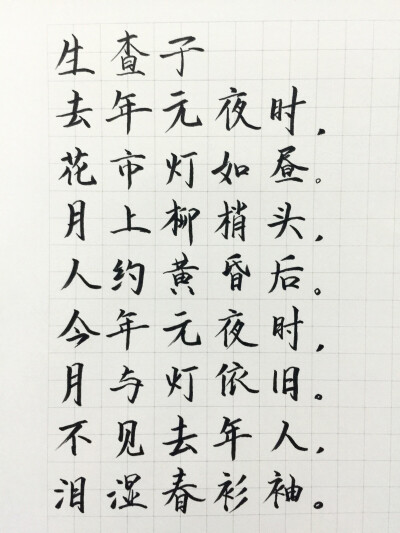 生查子
去年元夜时，
花市灯如昼。
月上柳梢头，
人约黄昏后。
今年元夜时，
月与灯依旧。
不见去年人，
泪湿春衫袖。